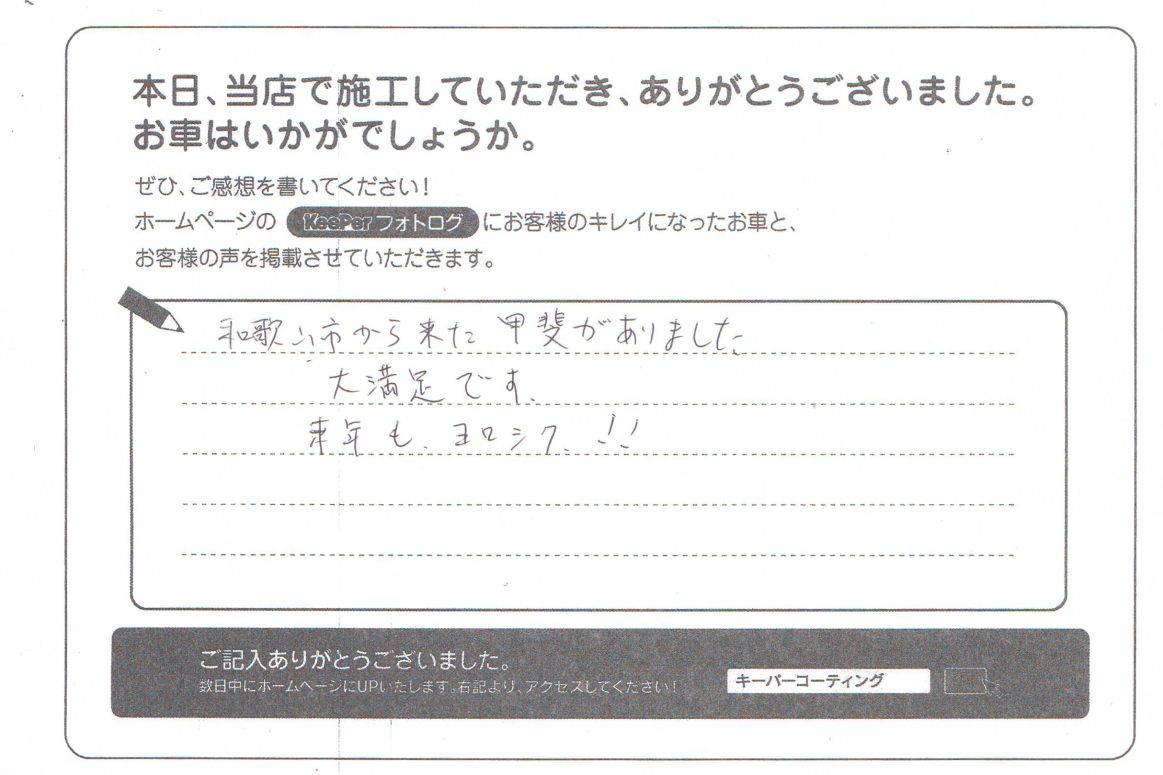 本日、当店で施工していただき、ありがとうございました。
お車はいかがでしょうか。
ぜひ、ご感想を書いてください！
ホームページの KeePer フォトログ にお客様のキレイになったお車と、
お客様の声を掲載させていただきます。
和歌山市から来た甲斐がありました
大満足です.
来年も、ヨロシク、!!
ご記入ありがとうございました。
数日中にホームページにUPいたします。右記より、アクセスしてください！
キーパーコーティング